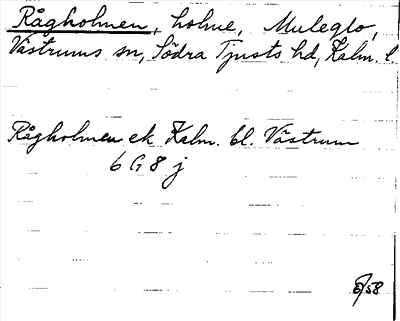 Rågholmen, holme, Muleglo,
Västrums sn, Södra Tjusts hd, Kalm. l.
Rågholmen ek Kalm. bl. Västrum
6 G 8 j
8/58